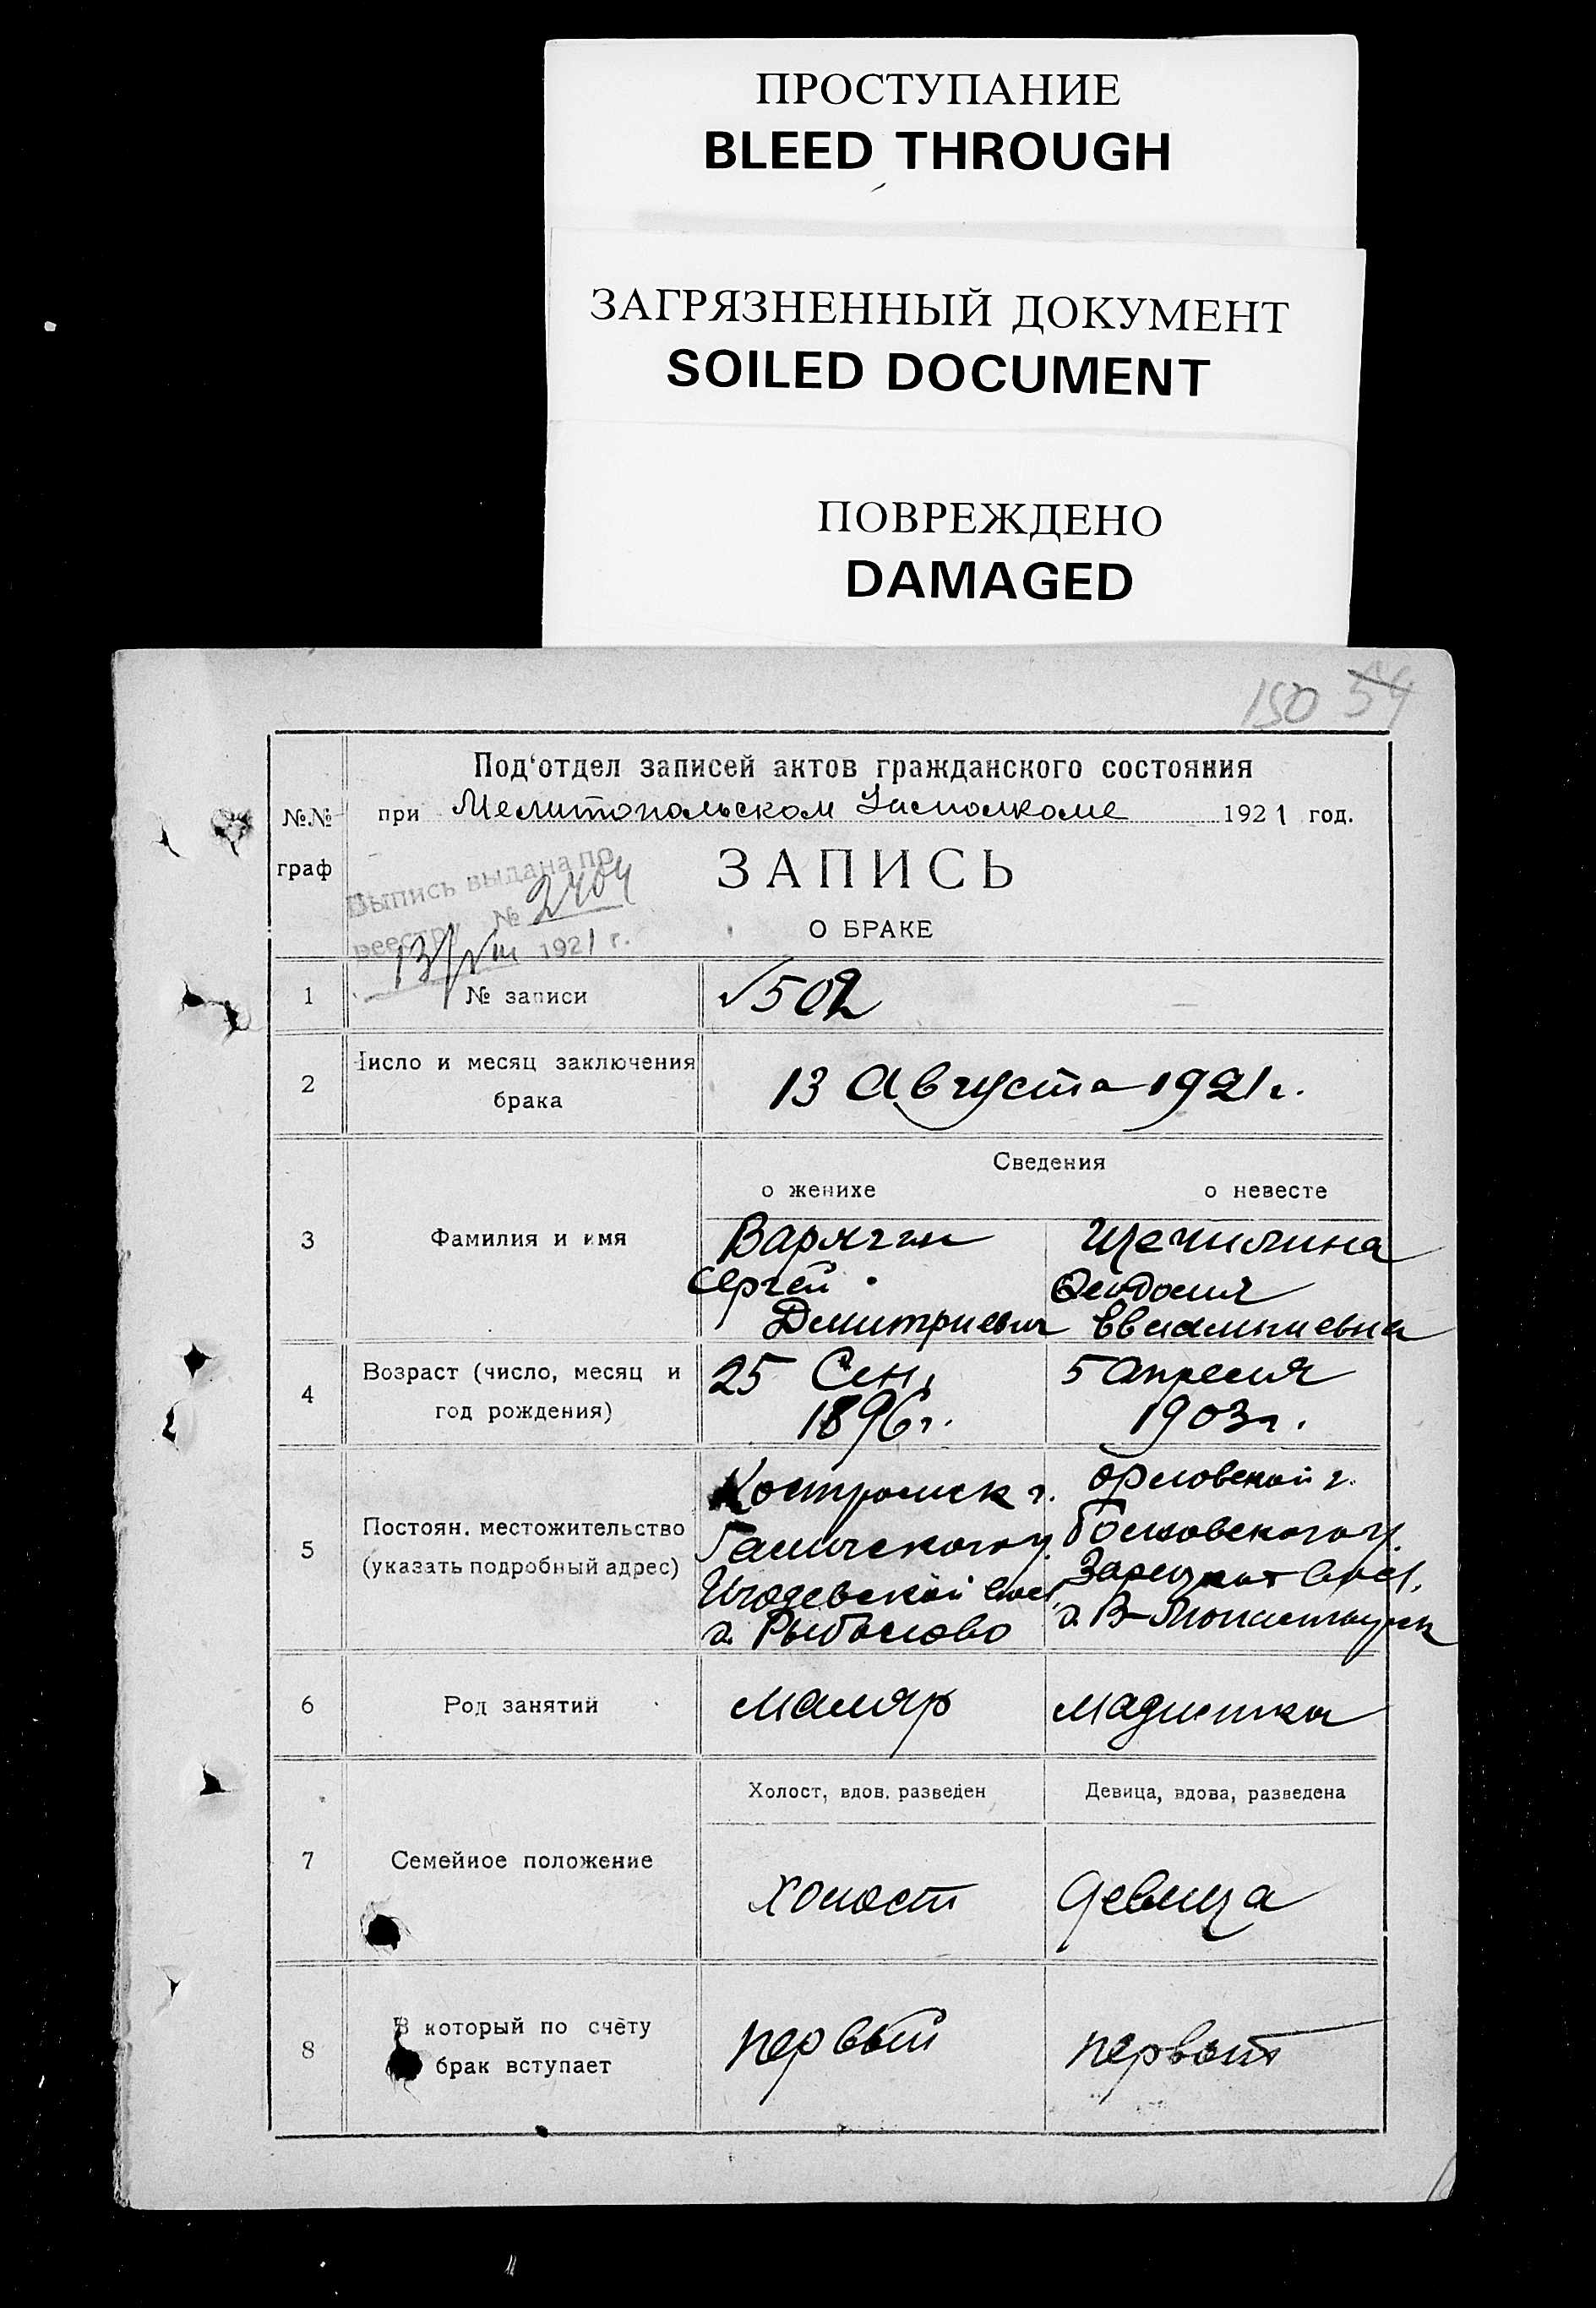 ПРОСТУПАНИЕ
BLEED THROUGH
ЗАГРЯЗНЕННЫЙ ДОКУМЕНТ
SOILED DOCUMENT
ПОВРЕЖДЕНО
DAMAGED
150 54
Под‘отдел записей актов гражданского состояния
№.№ граф
при Мелитопольском Исполкоме 1921 год.
Выпись выдана по
реестру № 2404
13/VIII 1921 г.
ЗАПИСЬ
О БРАКЕ
1 № записи 502
2 Число и месяц заключения брака 13 Августа 1921 г.
Сведения
о женихе о невесте
3 Фамилия и имя
Варягин
Сергей
Дмитриевич
Феодосия
Евлампиевна
4 Возраст (число, месяц и год рождения)
25 Сен.
1896 г.
5 апреля
1903 г.
5 Постоян. местожительство (указать подробный адрес)
Костромск г.
Галичского у.
Игодевской вол
д. Рыболово
Орловской г.
Болховского у.
вол.
д.
6 Род занятий маляр
Холост, вдов. разведен Девица, вдова, разведена
7 Семейное положение холост девица
8 В который по счёту брак вступает первый первый